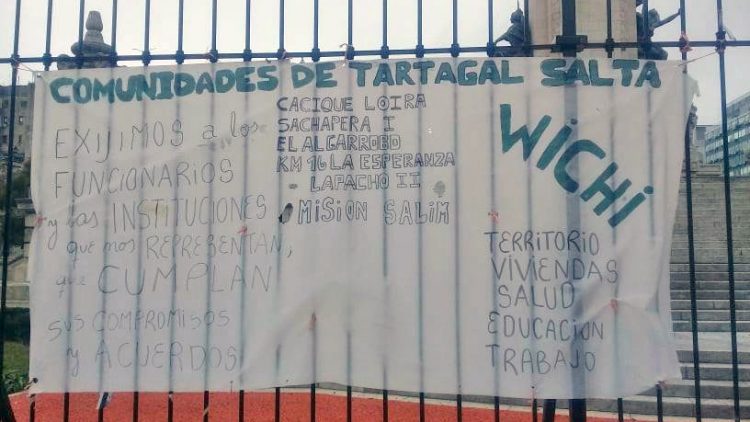 COMUNIDADES DE TARTAGAL SALTA
EXIJIMOS a los
FUNCIONARIOS
y las INSTITUCIONES
que nos REPRESENTAN,
que CUMPLAN
sus COMPROMISOS
y ACUERDOS
CACIQUE LOIRA
SACHAPERA I
EL ALGARROBO
KM 16 LA ESPERANZA
- LAPACHO II
MISION SALIM
WICHI
TERRITORIO
VIVIENDAS
SALUD
EDUCACION
TRABAJO